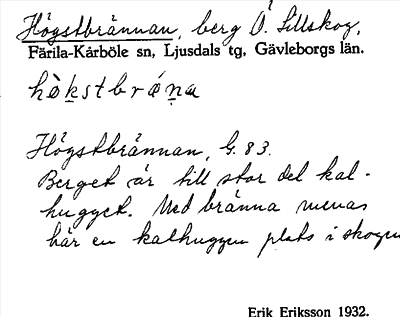 Högstbrännan, berg Ö. Lillskog,
Färila-Kårböle sn, Ljusdals tg, Gävleborgs län.
hö̀kstbrǽṇa
Högstbrännan, G. 83.
Berget är till stor del kal-
hugget. Med bränna menas
här en kalhuggen plats i skogen
Erik Eriksson 1932.